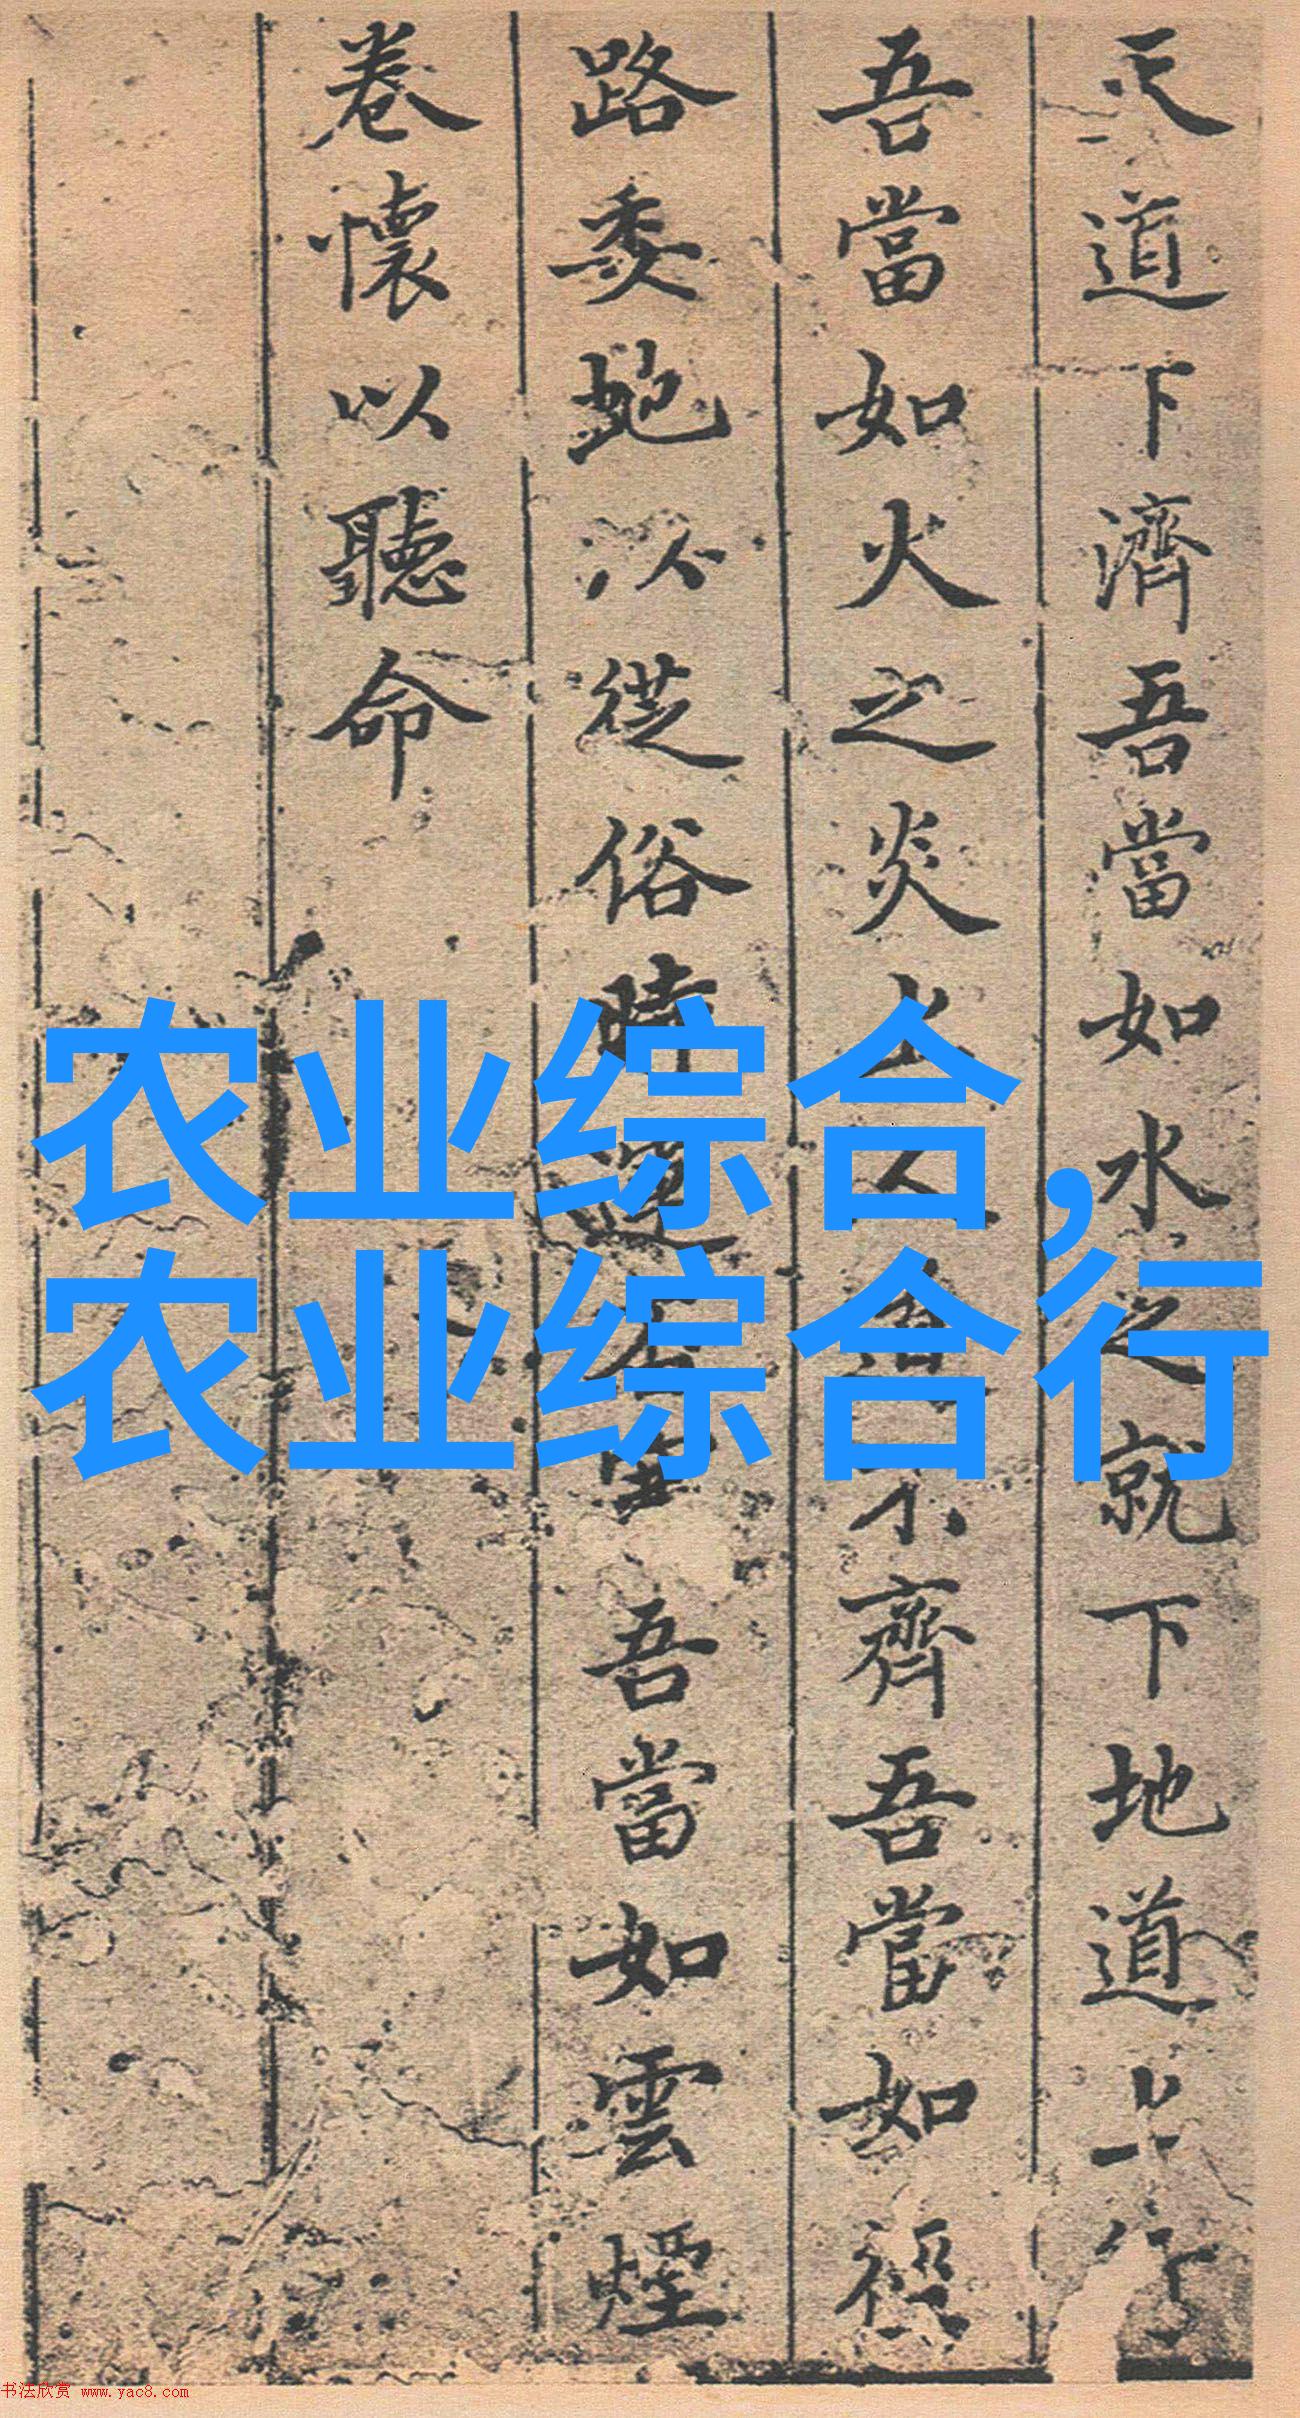 天道下濟吾當如水之就下地道上行
吾當如火之炎上人不齊吾當如徑
路委虵以從俗時運吾當如雲煙
卷懷以聽命
农业综合，
农业综合行
书法欣赏 www.yac8.com